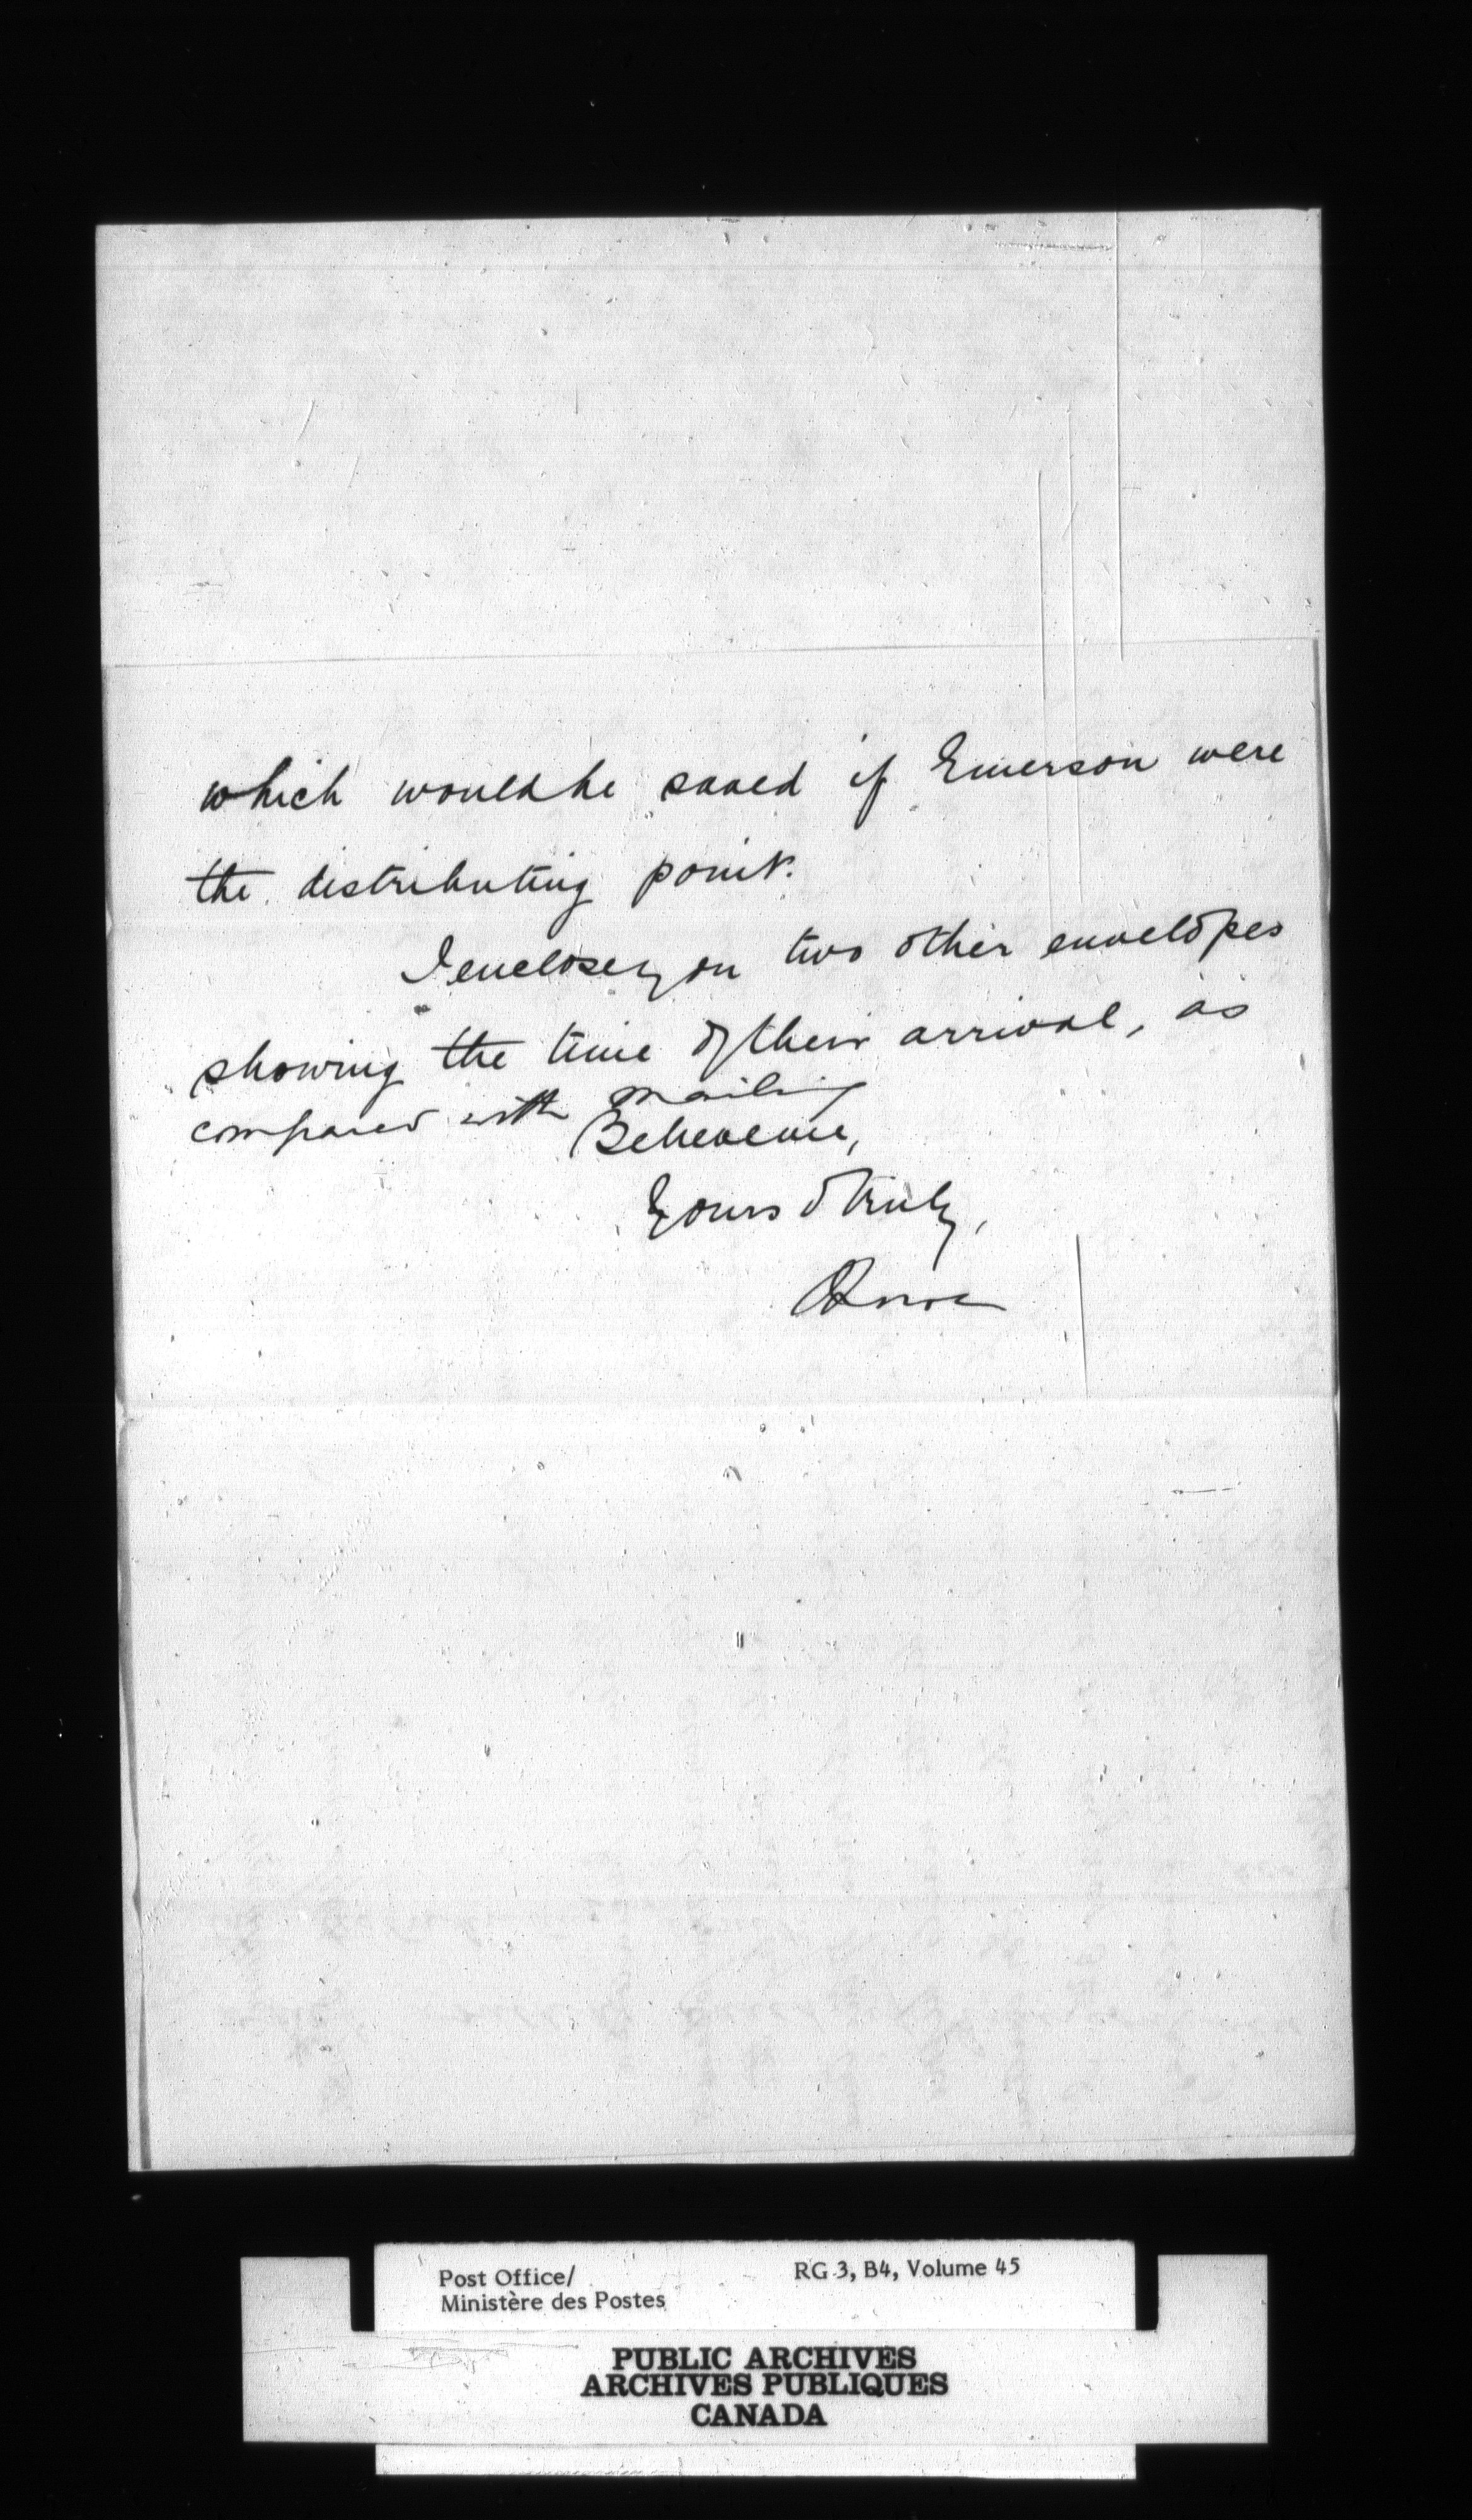 which would be saved if Emerson were
the distributing point.
I enclose you two other envelopes
showing the time of their arrival, as
compared with mailing
Believe me,
Yours truly,
Post Office/
Ministère des Postes
RG 3, B4, Volume 45
PUBLIC ARCHIVES
ARCHIVES PUBLIQUES
CANADA